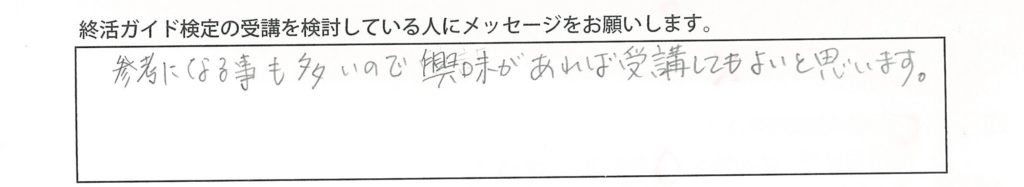 終活ガイド検定の受講を検討している人にメッセージをお願いします。
参考になる事も多いので興味があれば受講してもよいと思います。